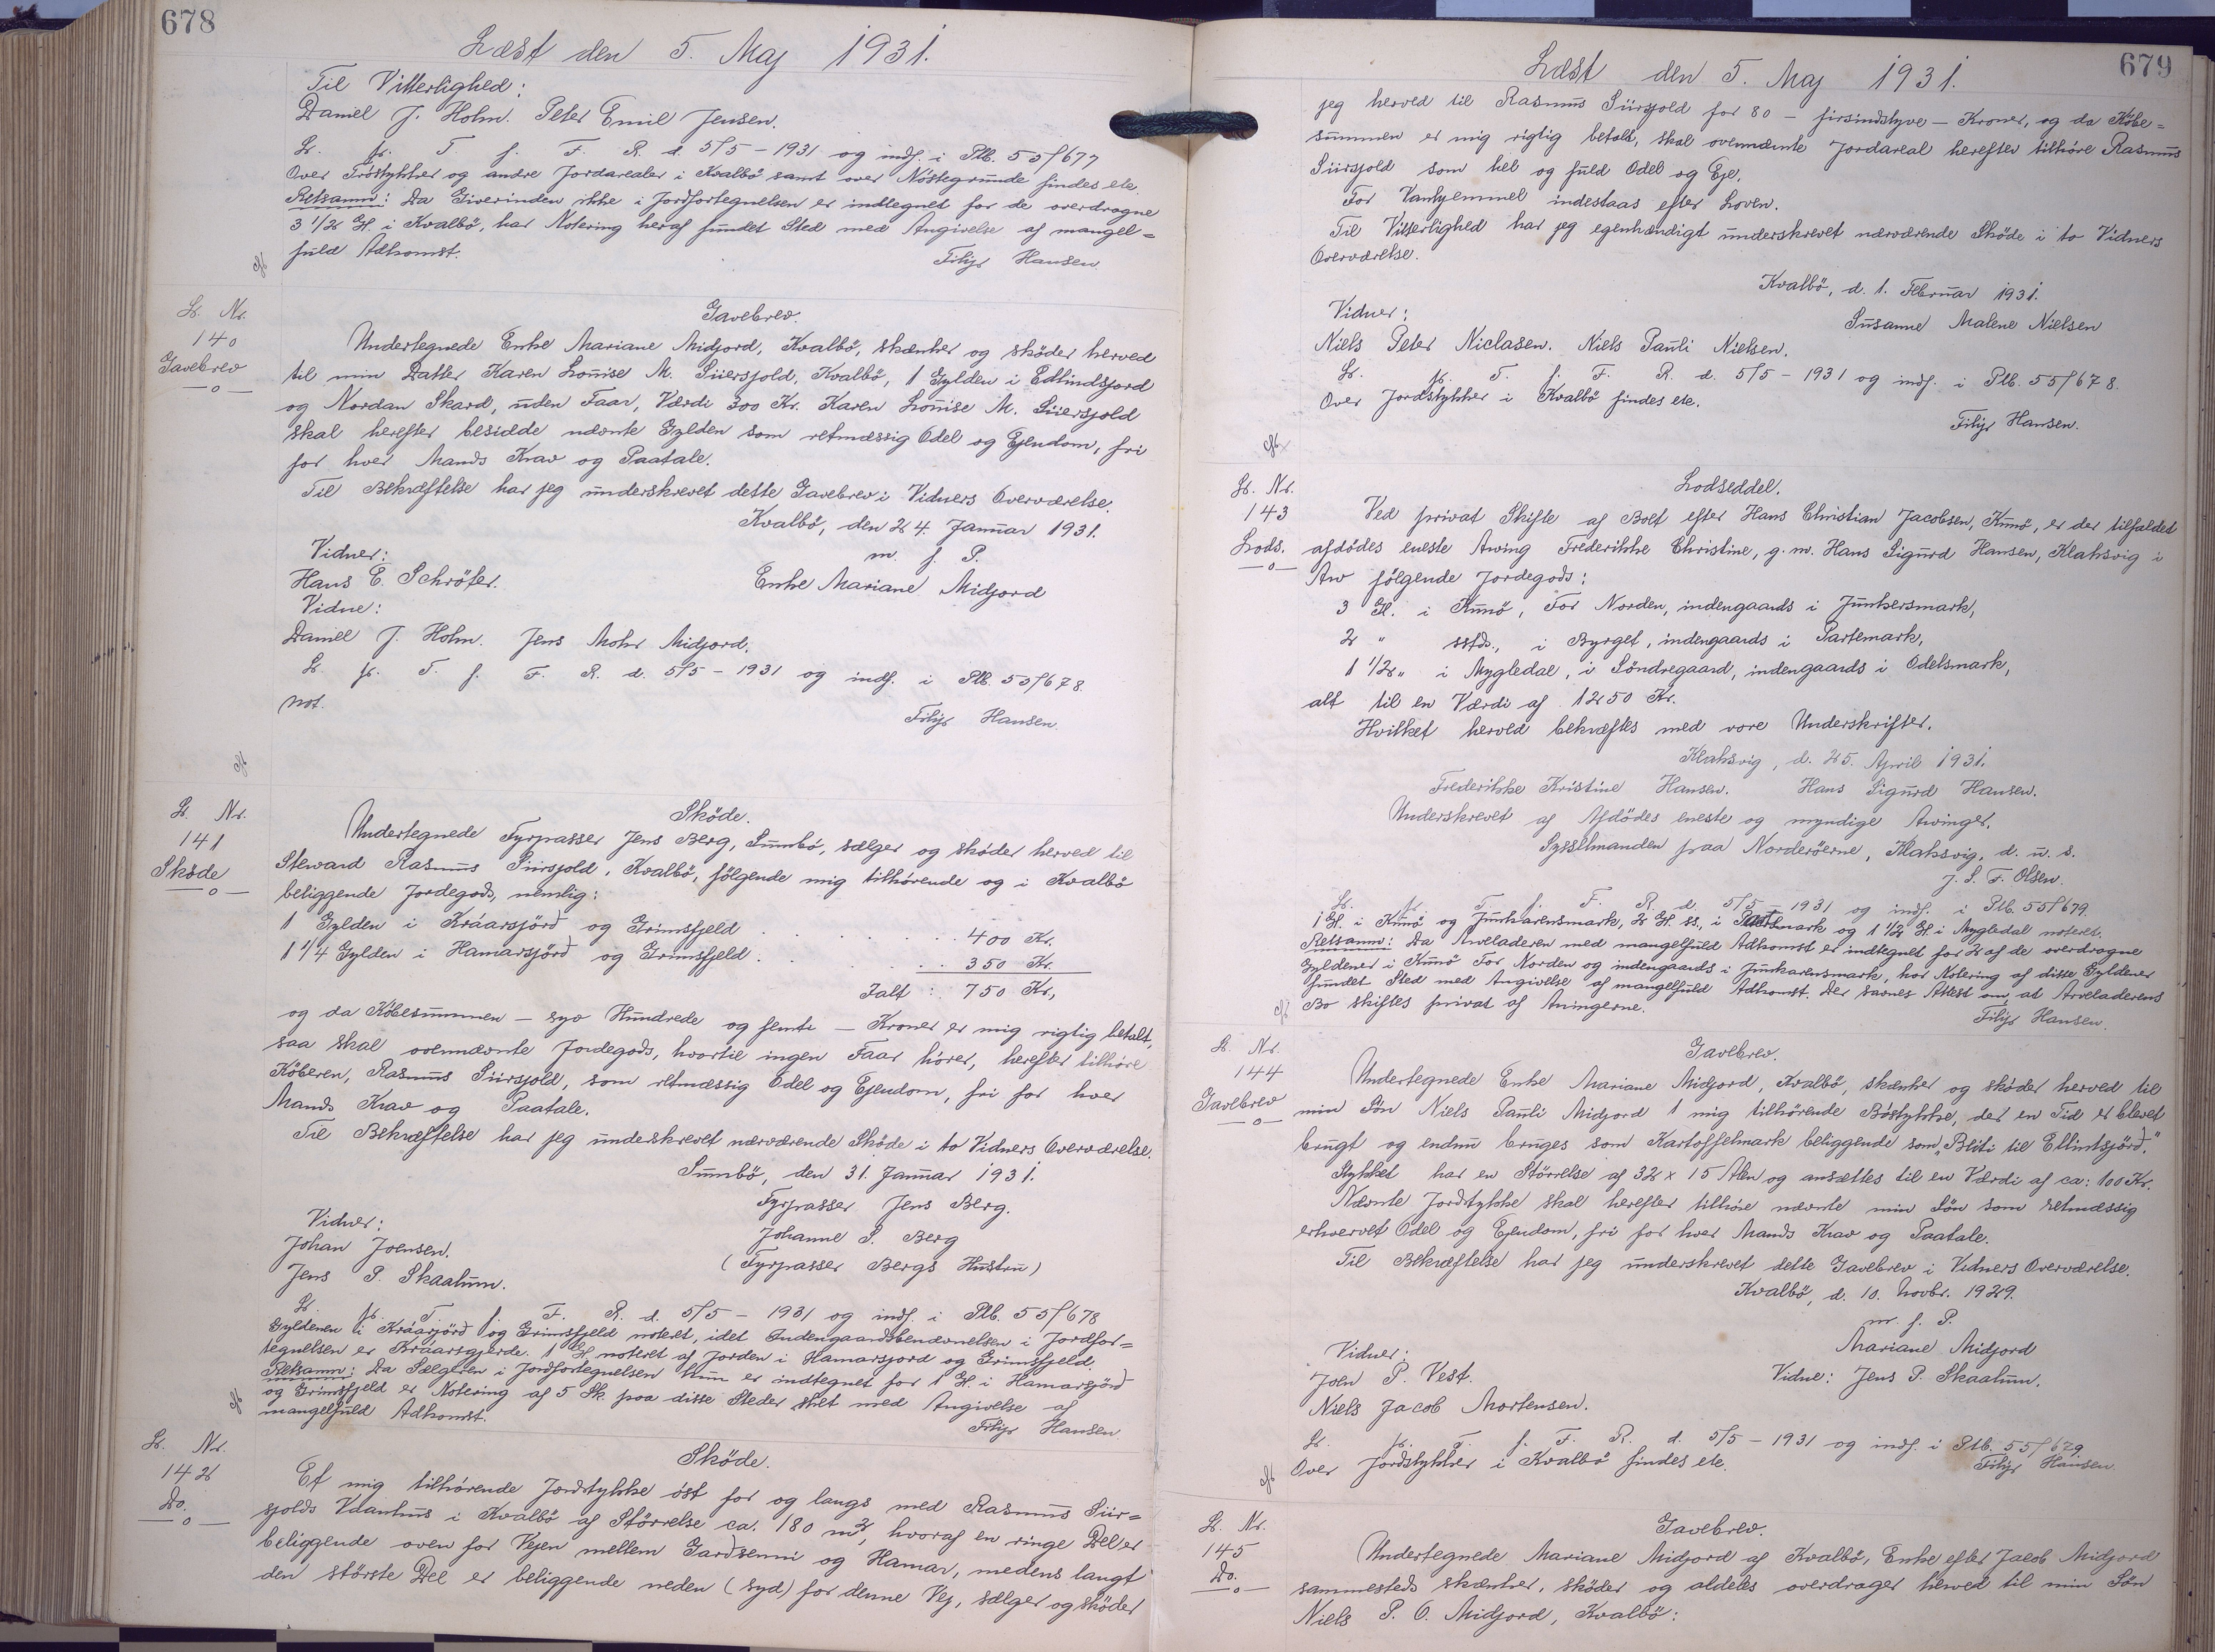 678
Læst den 5. Maj 1931.
Til Vitterlighed:
Daniel J. Holm. Peter Emil Jensen.
L. p. T. f. F. R. d. 5/5 - 1931 og indf. i Ptb. 55/677
Over Tröstykker og andre Jordarealer i Kvalbö samt over Nöstegrunde findes ele.
Retsanm: Da Giverinden ikke i Jordfortegnelsen er indtegnet for de overdragne
3 1/2 Gl. i Kvalbö, har Notering heraf fundet Sted med Angivelse af mangel=
fuld Adkomst.
Filip Hansen.
L. Nr.
140
Gavebrev
Gavebrev.
Undertegnede Enke Mariane Midjord, Kvalbö, skænker og sköder herved
til min Datter Karen Louise M. Süersjold, Kvalbö, 1 Gylden i Edlindsfjord
og Nordan Skard, uden Faar, Værdi 300 Kr. Karen Louise M. Süersjold
skal herefter besidde nævnte Gylden som retmæssig Odel og Ejendom, fri
for hver Mands Krav og Paatale.
Til Bekræftelse har jeg underskrevet dette Gavebrev i Vidners Overværelse.
Kvalbö, den 24. Januar 1931.
m. f. P.
Vidner:
Hans E. Schröter.
Enke Mariane Midjord
Vidne:
Daniel J. Holm. Jens Mohr Midjord.
L. p. T. f. F. R. d. 5/5 - 1931 og indf. i Ptb. 55/678.
Not.
Filip Hansen.
L. Nr.
141
Sköde
Sköde.
Undertegnede Fyrpasser Jens Berg, Sumbö, sælger og sköder herved til
Steward Rasmus Süersjold, Kvalbö, fölgende mig tilhörende og i Kvalbö
beliggende Jordegods, nemlig:
1 Gylden i Kráarsjörð og Grimsfjeld . . . . . . 400 Kr.
1 1/4 Gylden i Hamarsjörð og Grimsfjeld . . . . . 350 Kr.
Ialt: 750 Kr,
og da Köbesummen - syv Hundrede og femti - Kroner er mig rigtig betalt,
saa skal ovennævnte Jordegods, hvortil ingen Faar hörer, herefter tilhöre
Köberen, Rasmus Süersjold, som retmæssig Odel og Ejendom, fri for hver
Mands Krav og Paatale.
Til Bekræftelse har jeg underskrevet nærværende Sköde i to Vidners Overværelse.
Sumbö, den 31. Januar 1931.
Fyrpasser Jens Berg.
Vidner:
Johanne S. Berg
Johan Joensen.
(Fyrpasser Bergs Hustru)
Jens P. Skaalum.
L. p. T. f. F. R. d. 5/5 - 1931 og indf. i Ptb. 55/678
Gyldenen i Kráarjörð og Grimsfjeld noteret, idet Indengaardsbenævnelsen i Jordfor=
tegnelsen er Kraarsgjerde. 1 Gl. noteret af Jorden i Hamarsjord og Grimsfjeld.
Retsanm: Da Sælgeren i Jordfortegnelsen kun er indtegnet for 1 Gl. i Hamarsjörð
og Grimsfjeld er Notering af 5 Sk. paa disse Steder sket med Angivelse af
mangelfuld Adkomst.
Filip Hansen
L. Nr.
142
Do.
Sköde.
Et mig tilhörende Jordstykke öst for og langs med Rasmus Süir=
sjolds Vaanhus i Kvalbö af Störrelse ca. 180 m2, hvoraf en ringe Del er
beliggende oven for Vejen mellem Garðsenni og Hamar, medens langt
den störste Del er beliggende neden (syd) for denne Vej, sælger og sköder
679
Læst den 5. Maj 1931.
jeg herved til Rasmus Süirsjold for 80 - firsindstyve - Kroner, og da Köbe=
summen er mig rigtig betalt, skal ovennævnte Jordareal herefter tilhöre Rasmus
Süirsjold som hel og fuld Odel og Eje.
For Vanhjemmel indestaas efter Loven.
Til Vitterlighed har jeg egenhændigt underskrevet nærværende Sköde i to Vidners
Overværelse.
Kvalbö, d. 1. Februar 1931.
Vidner:
Susanne Malene Nielsen
Niels Peter Niclasen. Niels Pauli Nielsen.
L. p. T. f. F. R. d. 5/5 - 1931 og indf. i Ptb. 55/678.
Over Jordstykker i Kvalbö findes ele.
Filip Hansen.
L. Nr.
143
Lods.
Lodseddel.
Ved privat Skifte af Boet efter Hans Christian Jacobsen, Kunö, er der tilfaldet
afdödes eneste Arving Frederikke Christine, g. m. Hans Sigurd Hansen, Klaksvig i
Arv fölgende Jordegods:
3 Gl. i Kunö, For Norden, indengaards i Junkersmark,
2 " sstds., i Byrget, indengaards i Partemark,
1 1/2 " i Mygledal, i Söndregaard, indengaards i Odelsmark,
alt til en Værdi af 1250 Kr.
Hvilket herved bekræftes med vore Underskrifter.
Klaksvig, d. 25. April 1931.
Frederikke Kristine Hansen. Hans Sigurd Hansen.
Underskrevet af Afdödes eneste og myndige Arvinger.
Sysselmanden paa Norderöerne, Klaksvig, d. u. s.
J. S. F. Olsen.
L. p. T. f. F. R. d. 5/5 - 1931 og indf. i Ptb. 55/679.
1 Gl. i Kunö og Junkarensmark, 2 Gl. ss., i Partsmark og 1 1/2 Gl. i Mygledal noteret.
Retsanm: Da Arveladeren med mangelfuld Adkomst er indtegnet for 2 af de overdragne
Gyldener i Kunö For Norden og indengaards i Junkarensmark, har Notering af disse Gyldener
fundet Sted med Angivelse af mangelfuld Adkomst. Der savnes Attest om, at Arveladerens
Bo skiftes privat af Arvingerne.
Filip Hansen.
L. Nr.
144
Gavebrev
Gavebrev.
Undertegnede Enke Mariane Midjord, Kvalbö, skænker og sköder herved til
min Sön Niels Pauli Midjord 1 mig tilhörende Böstykke, der en Tid er blevet
brugt og endnu bruges som Kartoffelmark beliggende som „Bliti til Ellintsjörð."
Stykket har en Störrelse af 32 x 15 Alen og ansættes til en Værdi af ca: 100 Kr.
Nævnte Jordstykke skal herefter tilhöre nævnte min Sön som retmæssig
erhvervet Odel og Ejendom, fri for hver Mands Krav og Paatale.
Til Bekræftelse har jeg underskrevet dette Gavebrev i Vidners Overværelse.
Kvalbö, d. 10. Novbr. 1929.
m. f. P.
Vidner:
Mariane Midjord
Joen P. Vest.
Vidne: Jens P. Skaalum.
Niels Jacob Mortensen.
L. p. T. f. F. R. d. 5/5 - 1931 og indf. i Ptb. 55/679
Over Jordstykker i Kvalbö findes ele.
Filip Hansen.
L. Nr.
145
Do.
Gavebrev.
Undertegnede Mariane Midjord af Kvalbö, Enke efter Jacob Midjord
sammesteds skænker, sköder og aldeles overdrager herved til min Sön
Niels P. O. Midjord, Kvalbö: